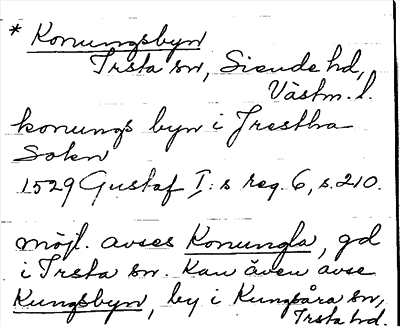 * Konungsbyn
Irsta sn, Siende hd,
Västm. l.
konungs byn i Jrestha
Sokn
1529 Gustaf I:s reg. 6, s. 210.
möjl. avses Konungla, gd
i Irsta sn. Kan även avse
Kungsbyn, by i Kungsåra sn,
Irsta hd.